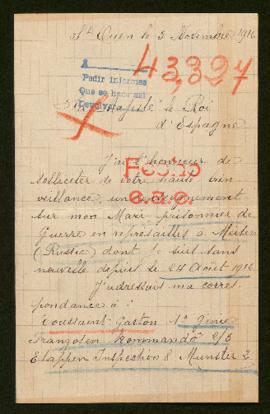 St Ouen le 3 Novembre 1916
A
43,397
Pedir informes
Que se hace así
Majesté le Roi
d'Espagne
J'ai l'honneur de
solliciter de votre haute bien
veillance, un renseignement
sur mon Mari, prisonnier de
Guerre en représailles à Mitau
(Russie) dont je suis sans
nouvelle depuis le 24 Août 1916
J'adressait ma corres
pondance à :
Toussaint Gaston 1er Génie
Frangolen Kommando 2/3
Etappen Inspection 8 Munster 2